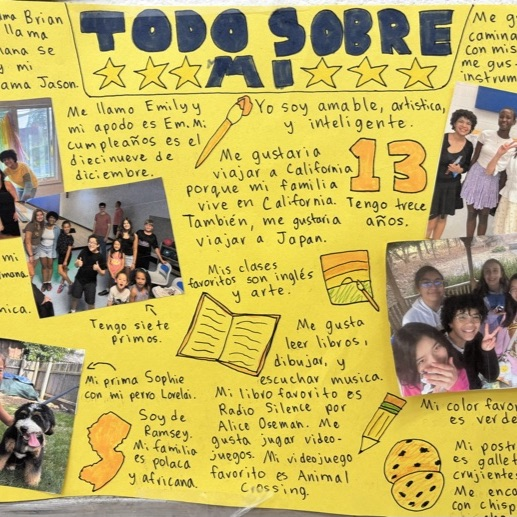 ama Brian
llama
ana se
y mi
ama Jason.
TODO SOBRE
MI
Me llamo Emily y
mi apodo es Em. Mi
cumpleaños es el
diecinueve de
diciembre.
Yo soy amable, artistica,
y inteligente.
Me gustaria
viajar a California
porque mi familia
vive en California.
También, me gustaria
viajar a Japan.
13
Tengo trece
años.
Mis clases
favoritos son inglés
y arte.
mi
mana.
nica.
Tengo siete
primos.
Mi prima Sophie
con mi perro Lovelai.
Soy de
Ramsey.
Mi familia
es polaca
y africana.
Me gusta
leer libros,
dibujar, y
escuchar musica.
Mi libro favorito es
Radio Silence por
Alice Oseman. Me
gusta jugar video-
juegos. Mi videojuego
favorito es Animal
Crossing.
Me g
camina
con mis
me gus
instrum
Mi color favor
es verde
Mi postr
es gallet
crujientes
Me enco
con chisp